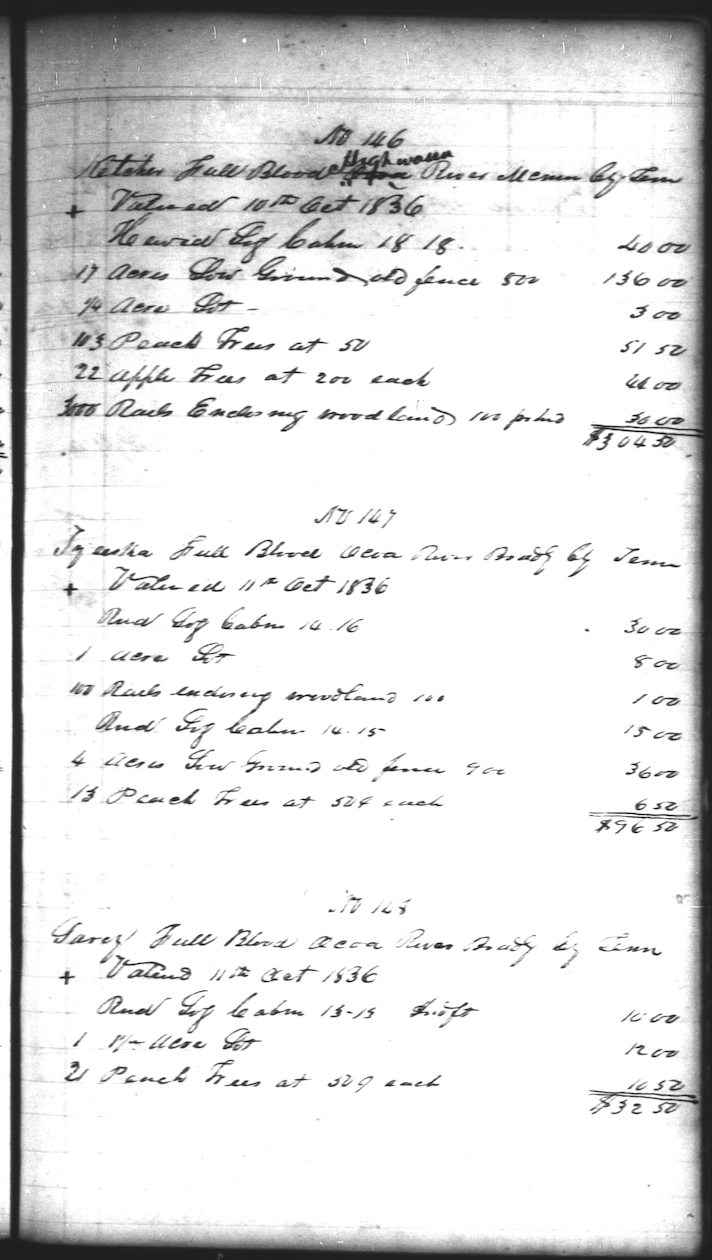 No 146
Ketcher Full Blood Highwassa River McMinn Cty Tenn
+ Valued 10th Oct 1836
Hewed Log Cabin 18 18. 40 00
17 Acres Low Ground old fence 800 136 00
1/4 Acre Lot - 3 00
103 Peach Trees at 50 51 50
22 apple Trees at 200 each 44 00
3000 Rails Enclosing woodland 100 30 00
$304 50
No 147
Full Blood Ocoa River Bradly Cty Tenn
+ Valued 11th Oct 1836
Rnd Log Cabin 14.16 30 00
1 Acre Lot 8 00
100 Rails enclosing woodland 100 1 00
Rnd Log Cabin 14.15 15 00
4 Acres Low Ground old fence 900 36 00
13 Peach Trees at 50¢ each 6 50
$96 50
No 148
Full Blood Ocoa River Bradly Cty Tenn
+ Valued 11th Oct 1836
Rnd Log Cabin 13-13 10 00
1 Acre Lot 12 00
21 Peach Trees at 50¢ each 10 50
$32 50